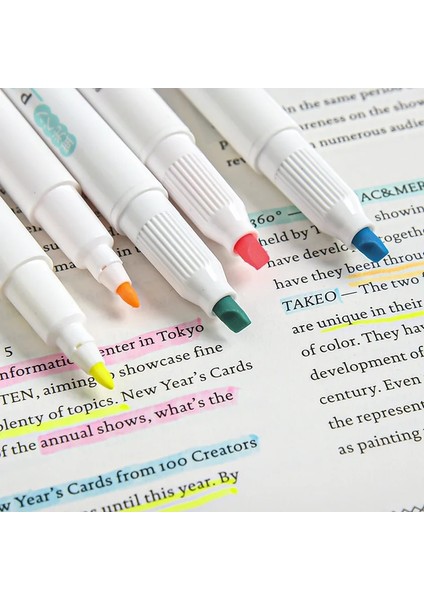 in the same period
awareness on the show
numerous audien
360° — AC&MER
held by T showing
have develo together
have they been through
TAKEO — The two
are unique in their
of color. They have
development of
century. Even
the represent
as painting
5
nformation enter in Tokyo
TEN, aiming to showcase fine
plenty of topics. New Year's Cards
of the annual shows, what's the
New Year's Cards from 100 Creators
until this year. By